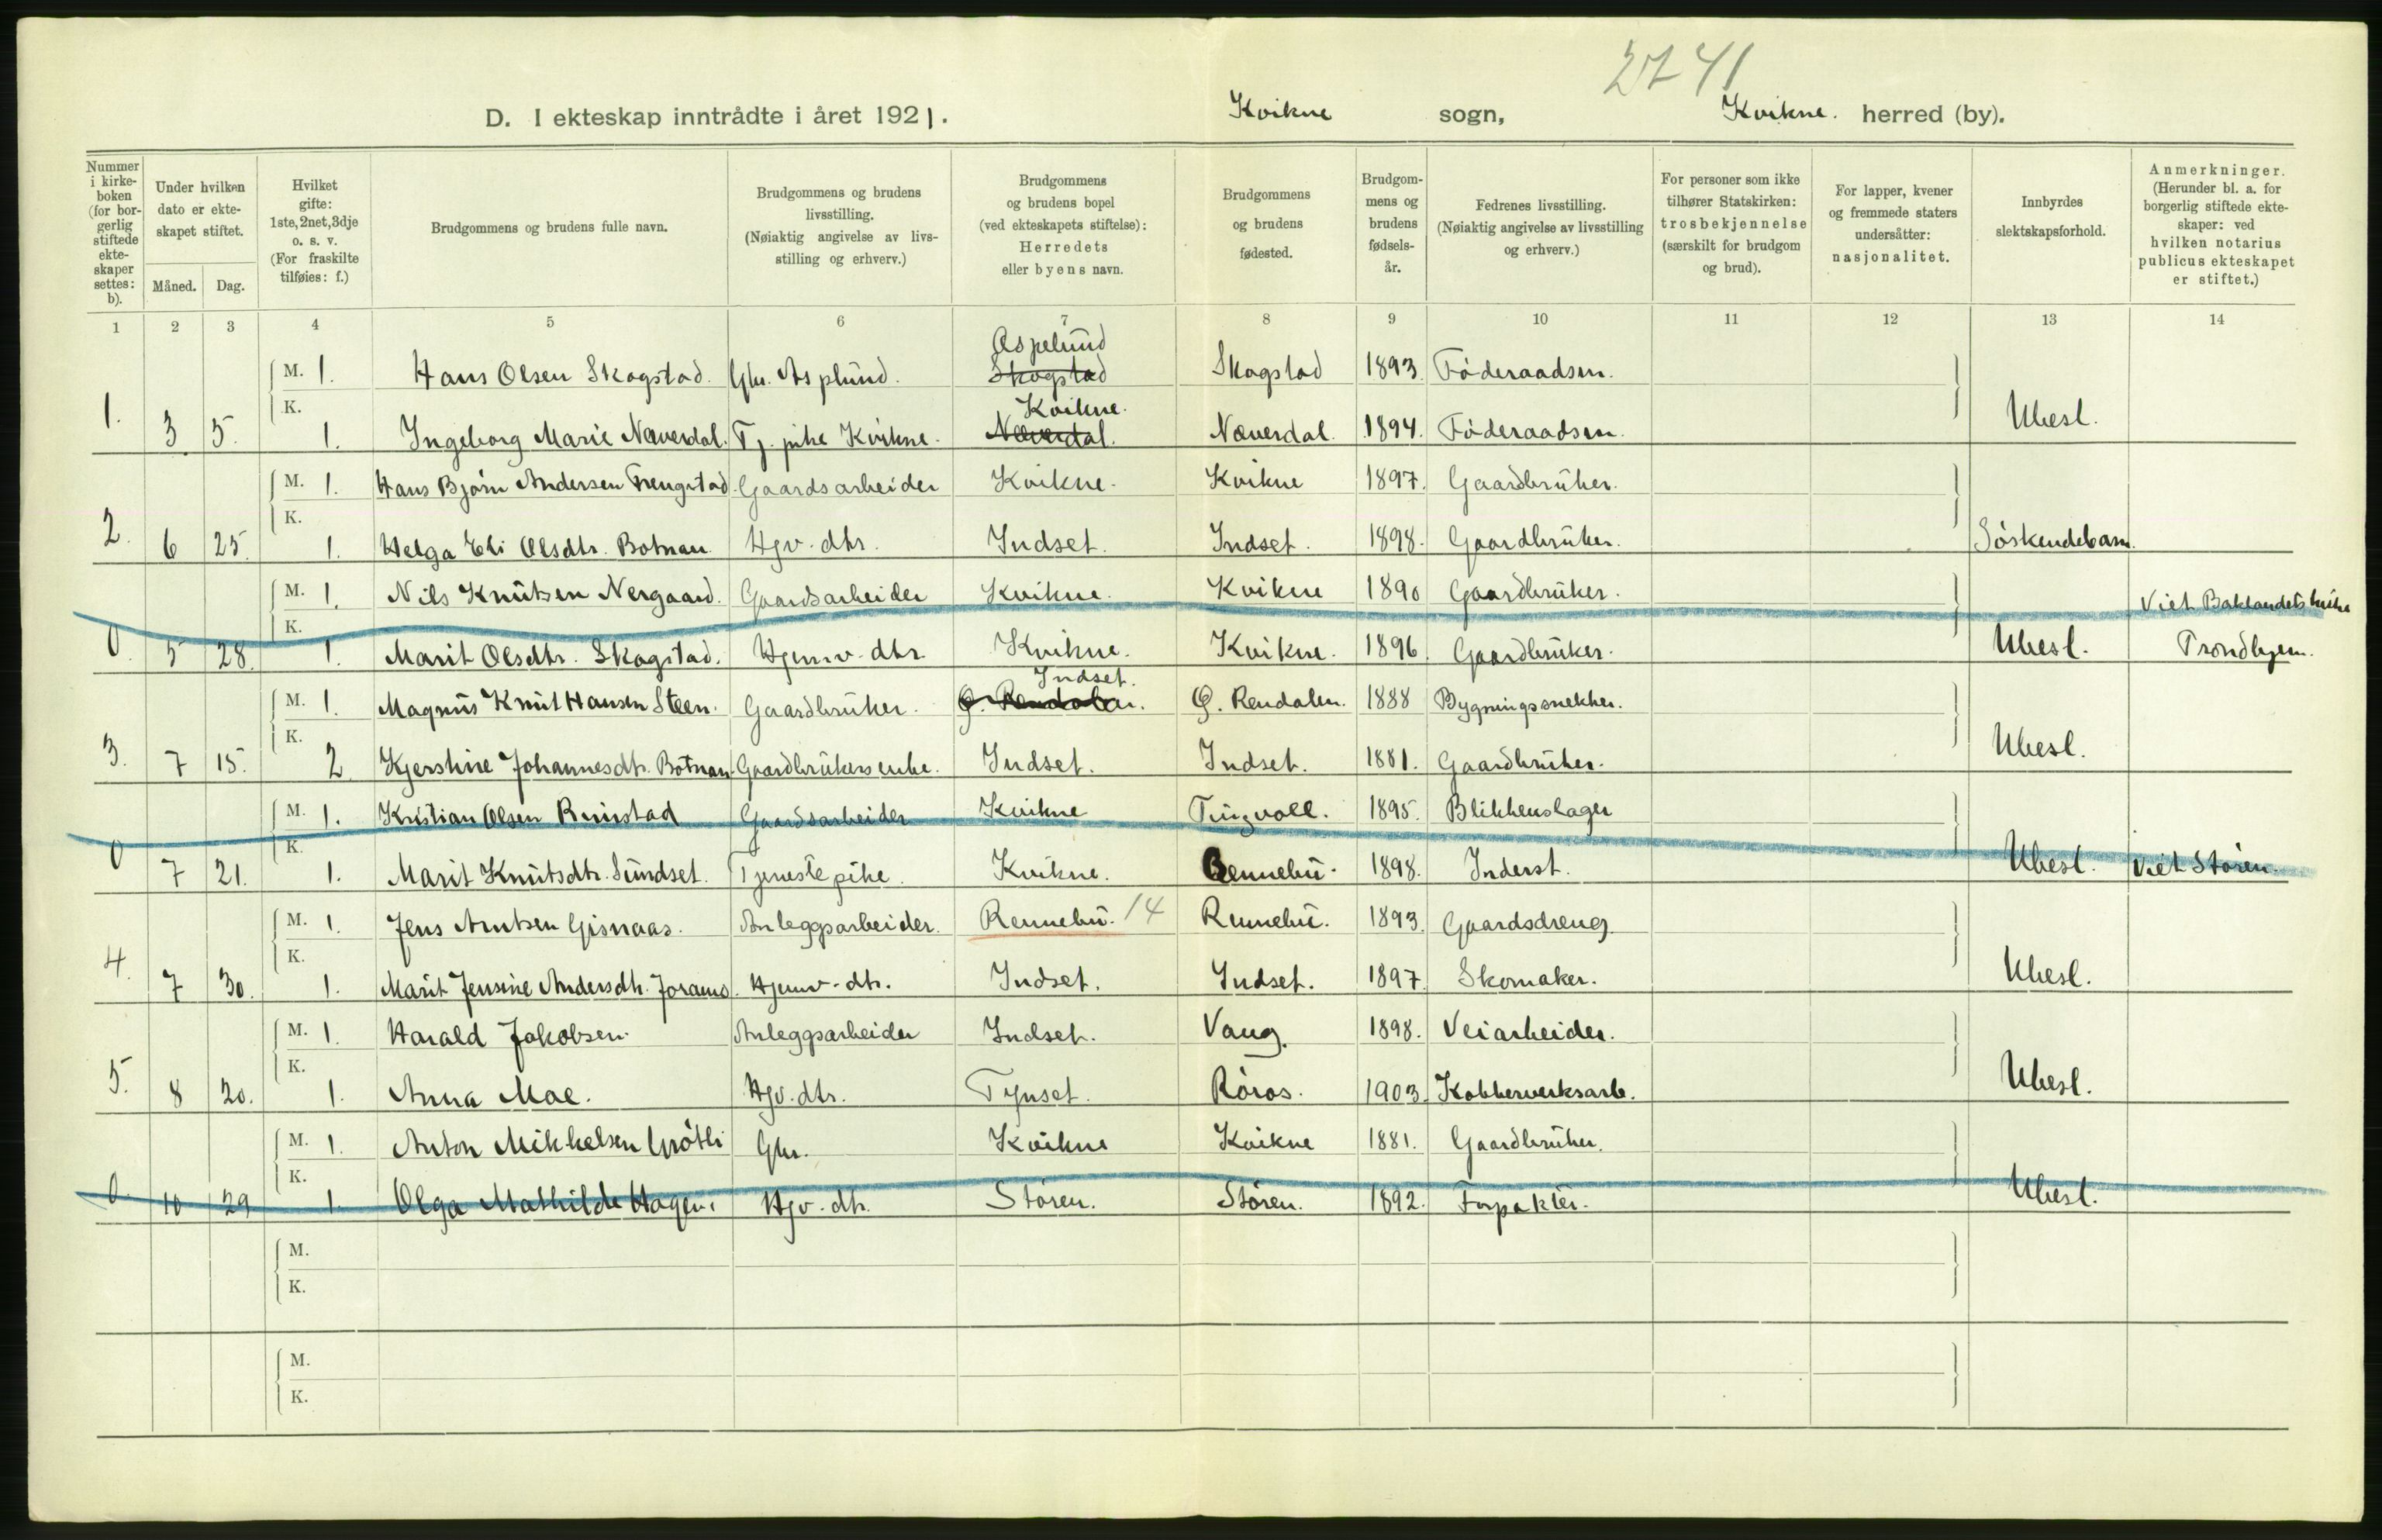 2741
D. I ekteskap inntrådte i året 1921. Kvikne sogn, Kvikne. herred (by).
Nummer i kirkeboken (for borgerlig stiftede ekteskaper settes: b).
Under hvilken dato er ekteskapet stiftet.
Måned. Dag.
Hvilket gifte: 1ste, 2net, 3dje o. s. v. (For fraskilte tilføies: f.)
Brudgommens og brudens fulle navn.
Brudgommens og brudens livsstilling. (Nøiaktig angivelse av livsstilling og erhverv.)
Brudgommens og brudens bopel (ved ekteskapets stiftelse): Herredets eller byens navn.
Brudgommens og brudens fødested.
Brudgommens og brudens fødselsår.
Fedrenes livsstilling. (Nøiaktig angivelse av livsstilling og erhverv.)
For personer som ikke tilhører Statskirken: trosbekjennelse (særskilt for brudgom og brud).
For lapper, kvener og fremmede staters undersåtter: nasjonalitet.
Innbyrdes slektskapsforhold.
Anmerkninger. (Herunder bl. a. for borgerlig stiftede ekteskaper: ved hvilken notarius publicus ekteskapet er stiftet.)
1 2 3 4 5 6 7 8 9 10 11 12 13 14
Aspelund
M. 1. Hans Olsen Skogstad. Gbr. Asplund. Skogstad Skogstad 1893. Föderaadsm.
K. Kvikne.
1. 3 5. 1. Ingeborg Marie Næverdal. Tj. pike Kvikne. Næverdal. Næverdal. 1894. Föderaadsm. Ubesl.
M. 1. Hans Bjørn Andersen Frengstad. Gaardsarbeider Kvikne. Kvikne 1897. Gaardbruker.
K.
2. 6 25. 1. Helga Eli Olsdtr. Botnan. Hjv. dtr. Indset. Indset. 1898. Gaardbruker. Söskendebarn.
M. 1. Nils Knutsen Nergaard. Gaardsarbeider Kvikne. Kvikne 1890 Gaardbruker. Viet Baklandets kirke
K.
0. 5 28. 1. Marit Olsdtr. Skogstad. Hjemv. dtr. Kvikne. Kvikne. 1896. Gaardbruker. Ubesl. Trondhjem.
Indset.
M. 1. Magnus Knut Hansen Steen. Gaardbruker. Ø. Rendalen. Ø. Rendalen. 1888 Bygningssnekker.
K.
3. 7 15. 2 Kjerstine Johannesdtr. Botnan. Gaardbrukers enke. Indset. Indset. 1881. Gaardbruker. Ubesl.
M. 1. Kristian Olsen Rimstad Gaardsarbeider Kvikne Tingvoll. 1895. Blikkenslager
K.
0 7 21. 1. Marit Knutsdtr. Sundset. Tjenestepike. Kvikne. Rennebu. 1898. Inderst. Ubesl. Viet Stören.
M. 1. Jens Arntsen Gisnaas. Anleggsarbeider. Rennebu. 14 Rennebu. 1893. Gaardsdreng.
K.
4. 7 30. 1. Marit Jensine Andersdtr. Joramo. Hjemv. dtr. Indset. Indset. 1897. Skomaker. Ubesl.
M. 1. Harald Jakobsen. Anleggsarbeider Indset. Vang. 1898. Veiarbeider.
K.
5. 8 20. 1. Anna Moe. Hjv. dtr. Tynset. Röros. 1903. Kobberverksarb. Ubesl.
M. 1. Anton Mikkelsen Grötli Gbr. Kvikne Kvikne 1881. Gaardbruker.
K.
0. 10 29 1. Olga Mathilde Hagen. Hjv. dtr. Stören. Stören. 1892. Forpakter. Ubesl.
M.
K.
M.
K.